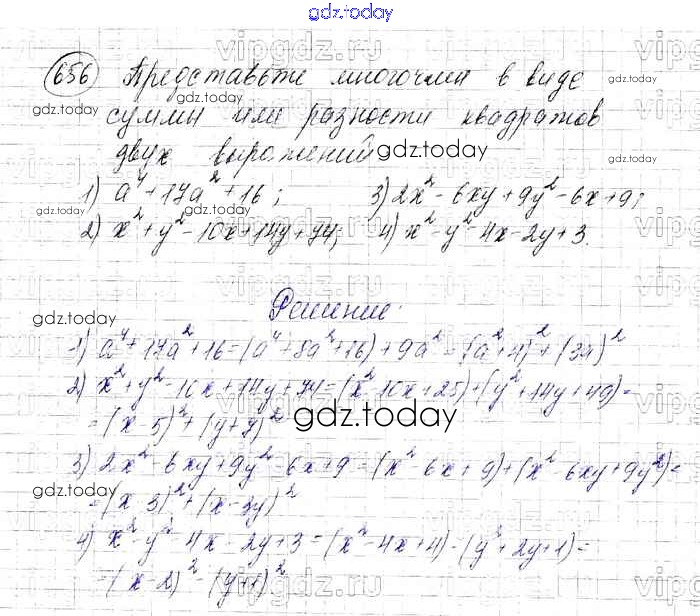 gdz.today
656 Представьте многочлен в виде
суммы или разности квадратов
двух выражений
1) a⁴+17a²+16; 3) 2x²-6xy+9y²-6x+9;
2) x²+y²-10x+14y+74; 4) x²-y²-4x-2y+3.
Решение:
1) a⁴+17a²+16=(a⁴+8a²+16)+9a²=(a²+4)²+(3a)²
2) x²+y²-10x+14y+74=(x²-10x+25)+(y²+14y+49)=
=(x-5)²+(y+7)²
gdz.today
3) 2x²-6xy+9y²-6x+9=(x²-6x+9)+(x²-6xy+9y²)=
=(x-3)²+(x-3y)²
4) x²-y²-4x-2y+3=(x²-4x+4)-(y²+2y+1)=
=(x-2)²-(y+1)²